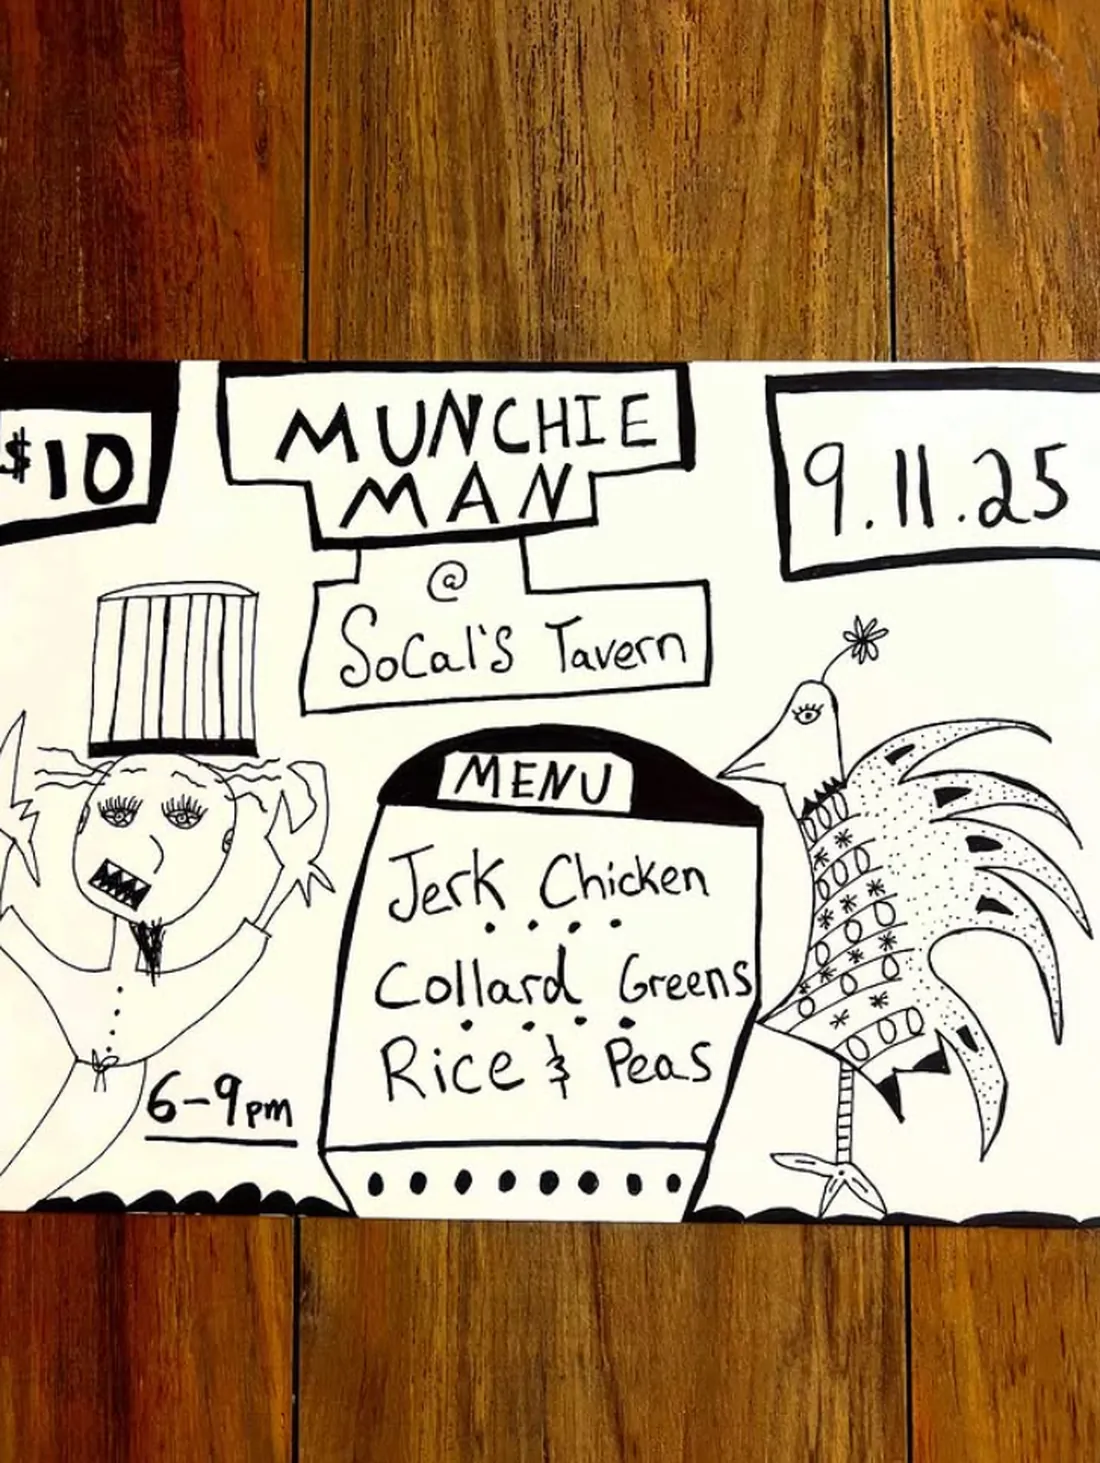 $10
MUNCHIE
MAN
@
SoCal's Tavern
9.11.25
MENU
Jerk Chicken
Collard Greens
Rice & Peas
6-9pm